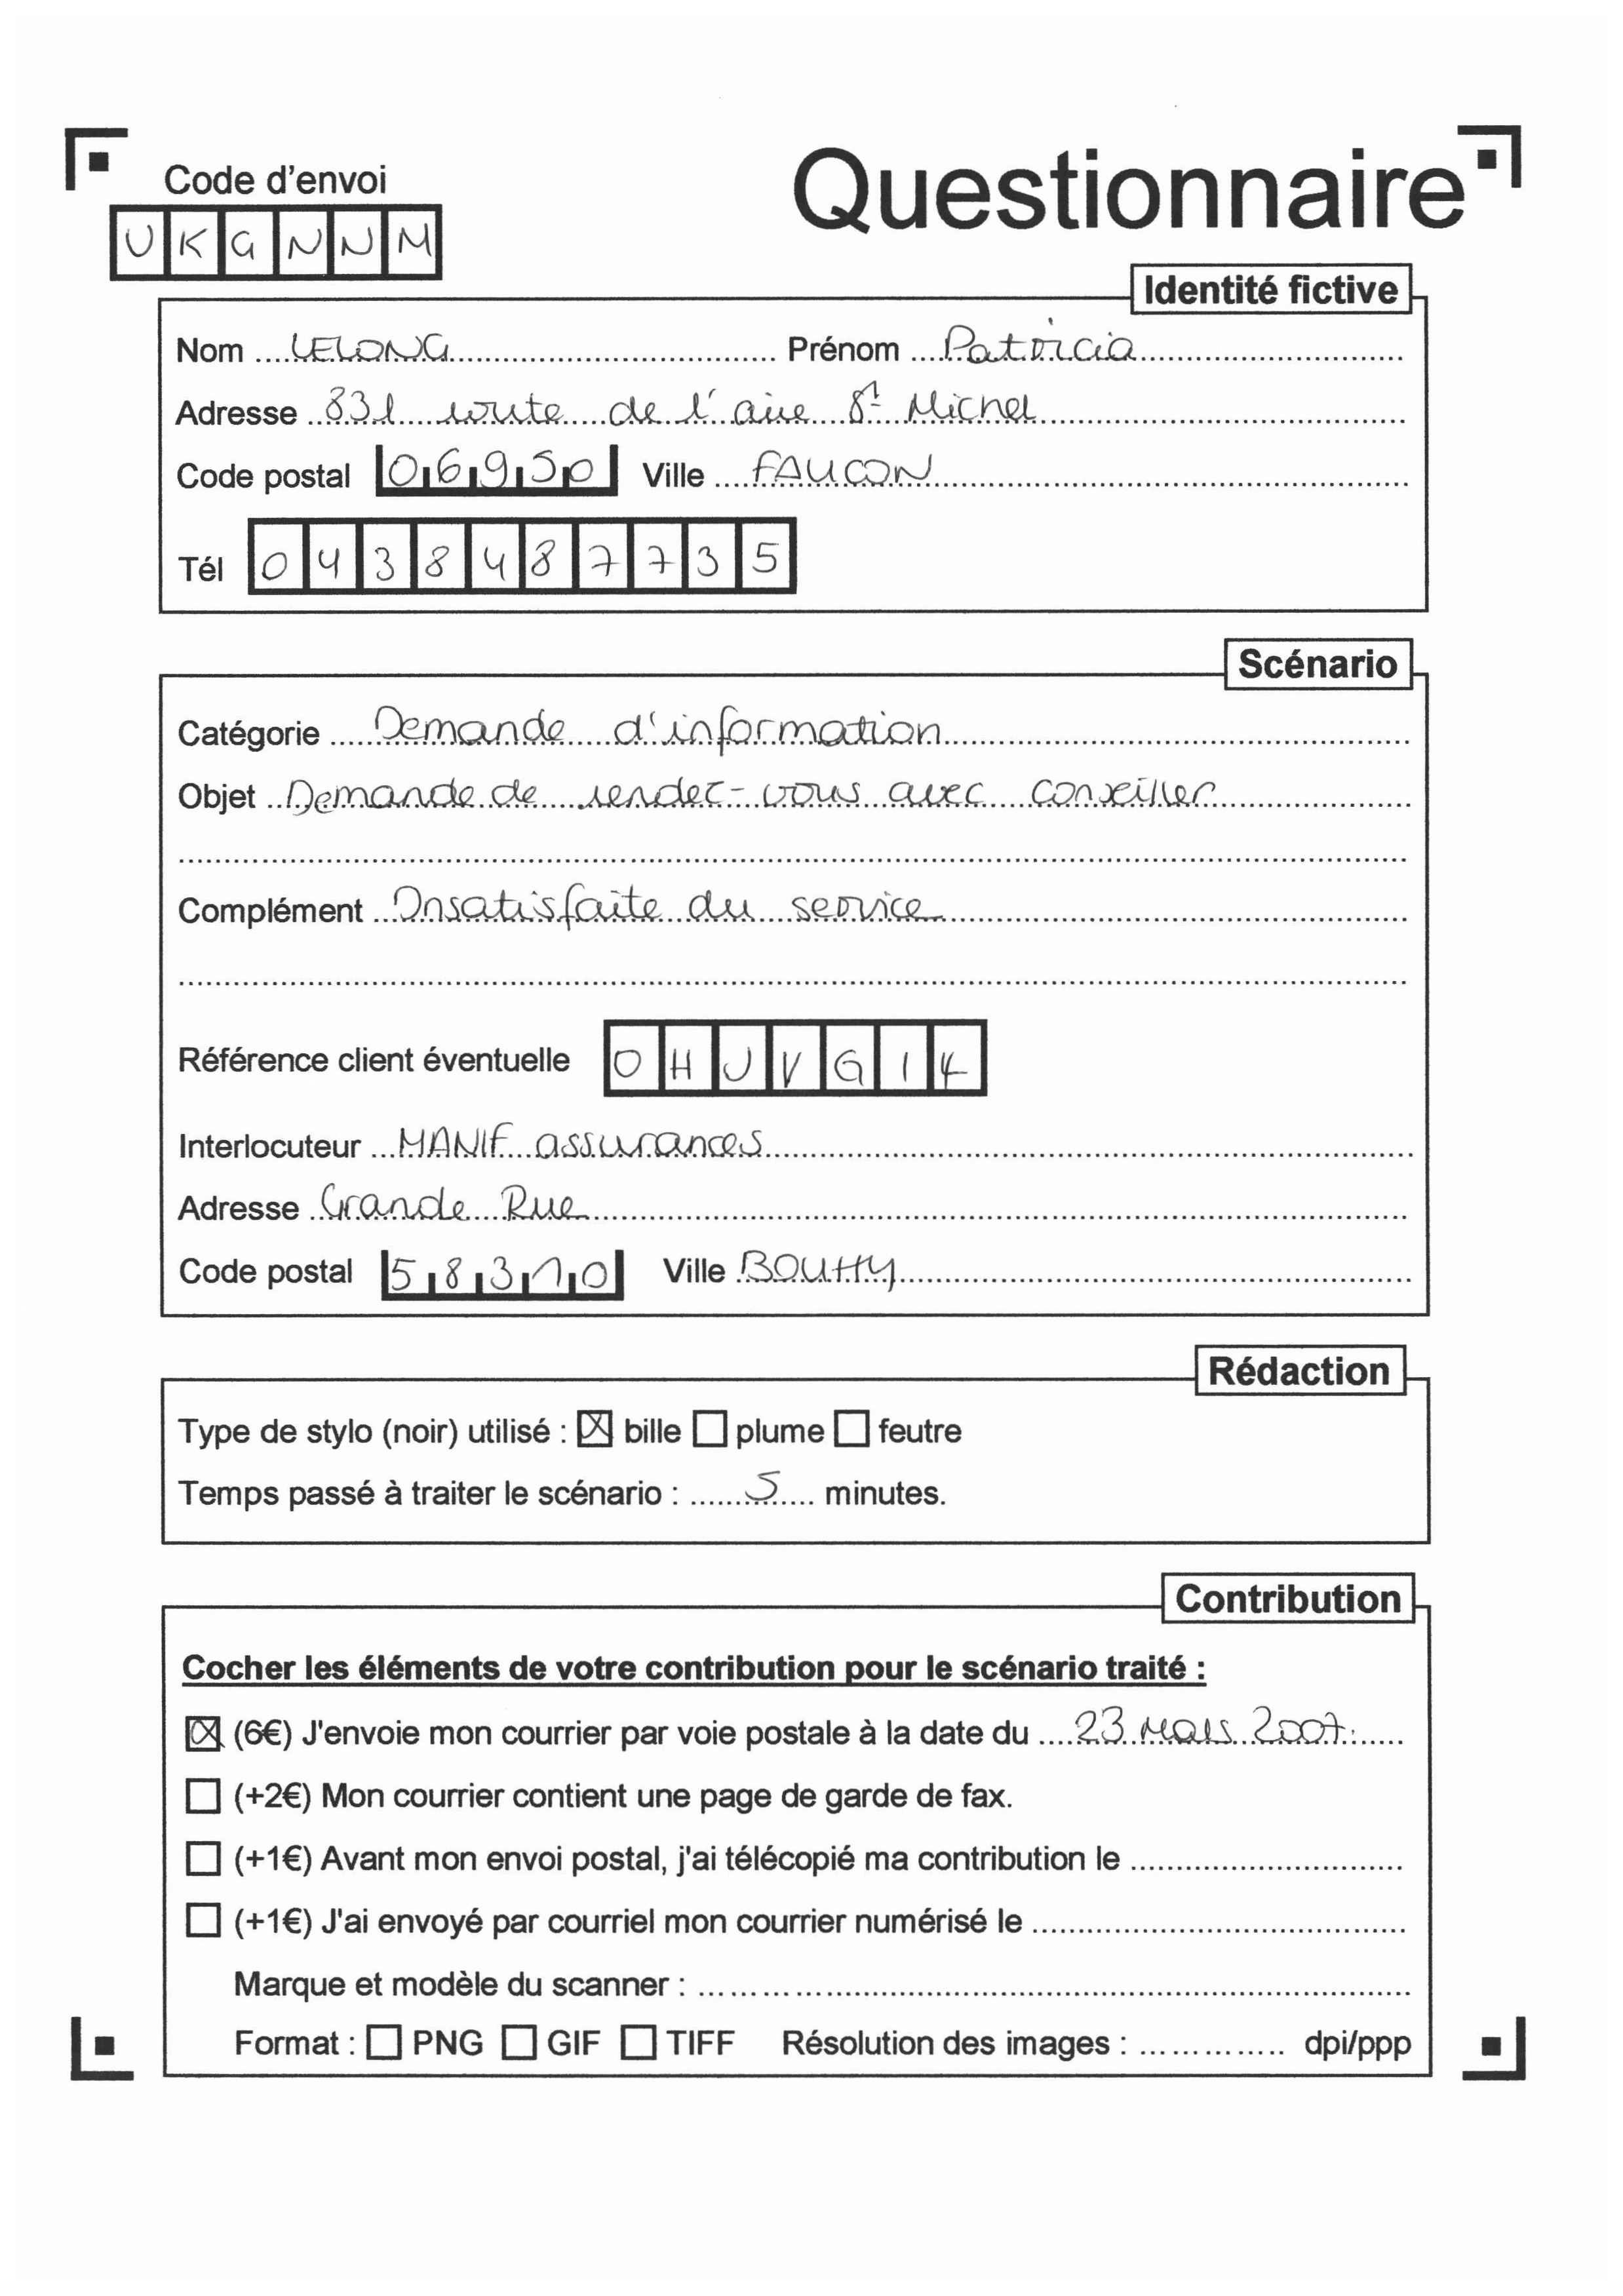 Questionnaire
Code d'envoi
UKGNNM
Identité fictive
Nom LELONG Prénom Patricia
Adresse 831 route de l'aire St Michel
Code postal 06950 Ville FAUCON
Tél 0438487735
Scénario
Catégorie Demande d'information
Objet Demande de rendez-vous avec conseiller
Complément Insatisfaite du service
Référence client éventuelle OHJVG14
Interlocuteur MANIF assurances
Adresse Grande Rue
Code postal 58310 Ville BOUHY
Rédaction
Type de stylo (noir) utilisé : ☒ bille ☐ plume ☐ feutre
Temps passé à traiter le scénario : 5 minutes.
Contribution
Cocher les éléments de votre contribution pour le scénario traité :
☒ (6€) J'envoie mon courrier par voie postale à la date du 23 mars 2007.
☐ (+2€) Mon courrier contient une page de garde de fax.
☐ (+1€) Avant mon envoi postal, j'ai télécopié ma contribution le
☐ (+1€) J'ai envoyé par courriel mon courrier numérisé le
Marque et modèle du scanner :
Format : ☐ PNG ☐ GIF ☐ TIFF Résolution des images : dpi/ppp